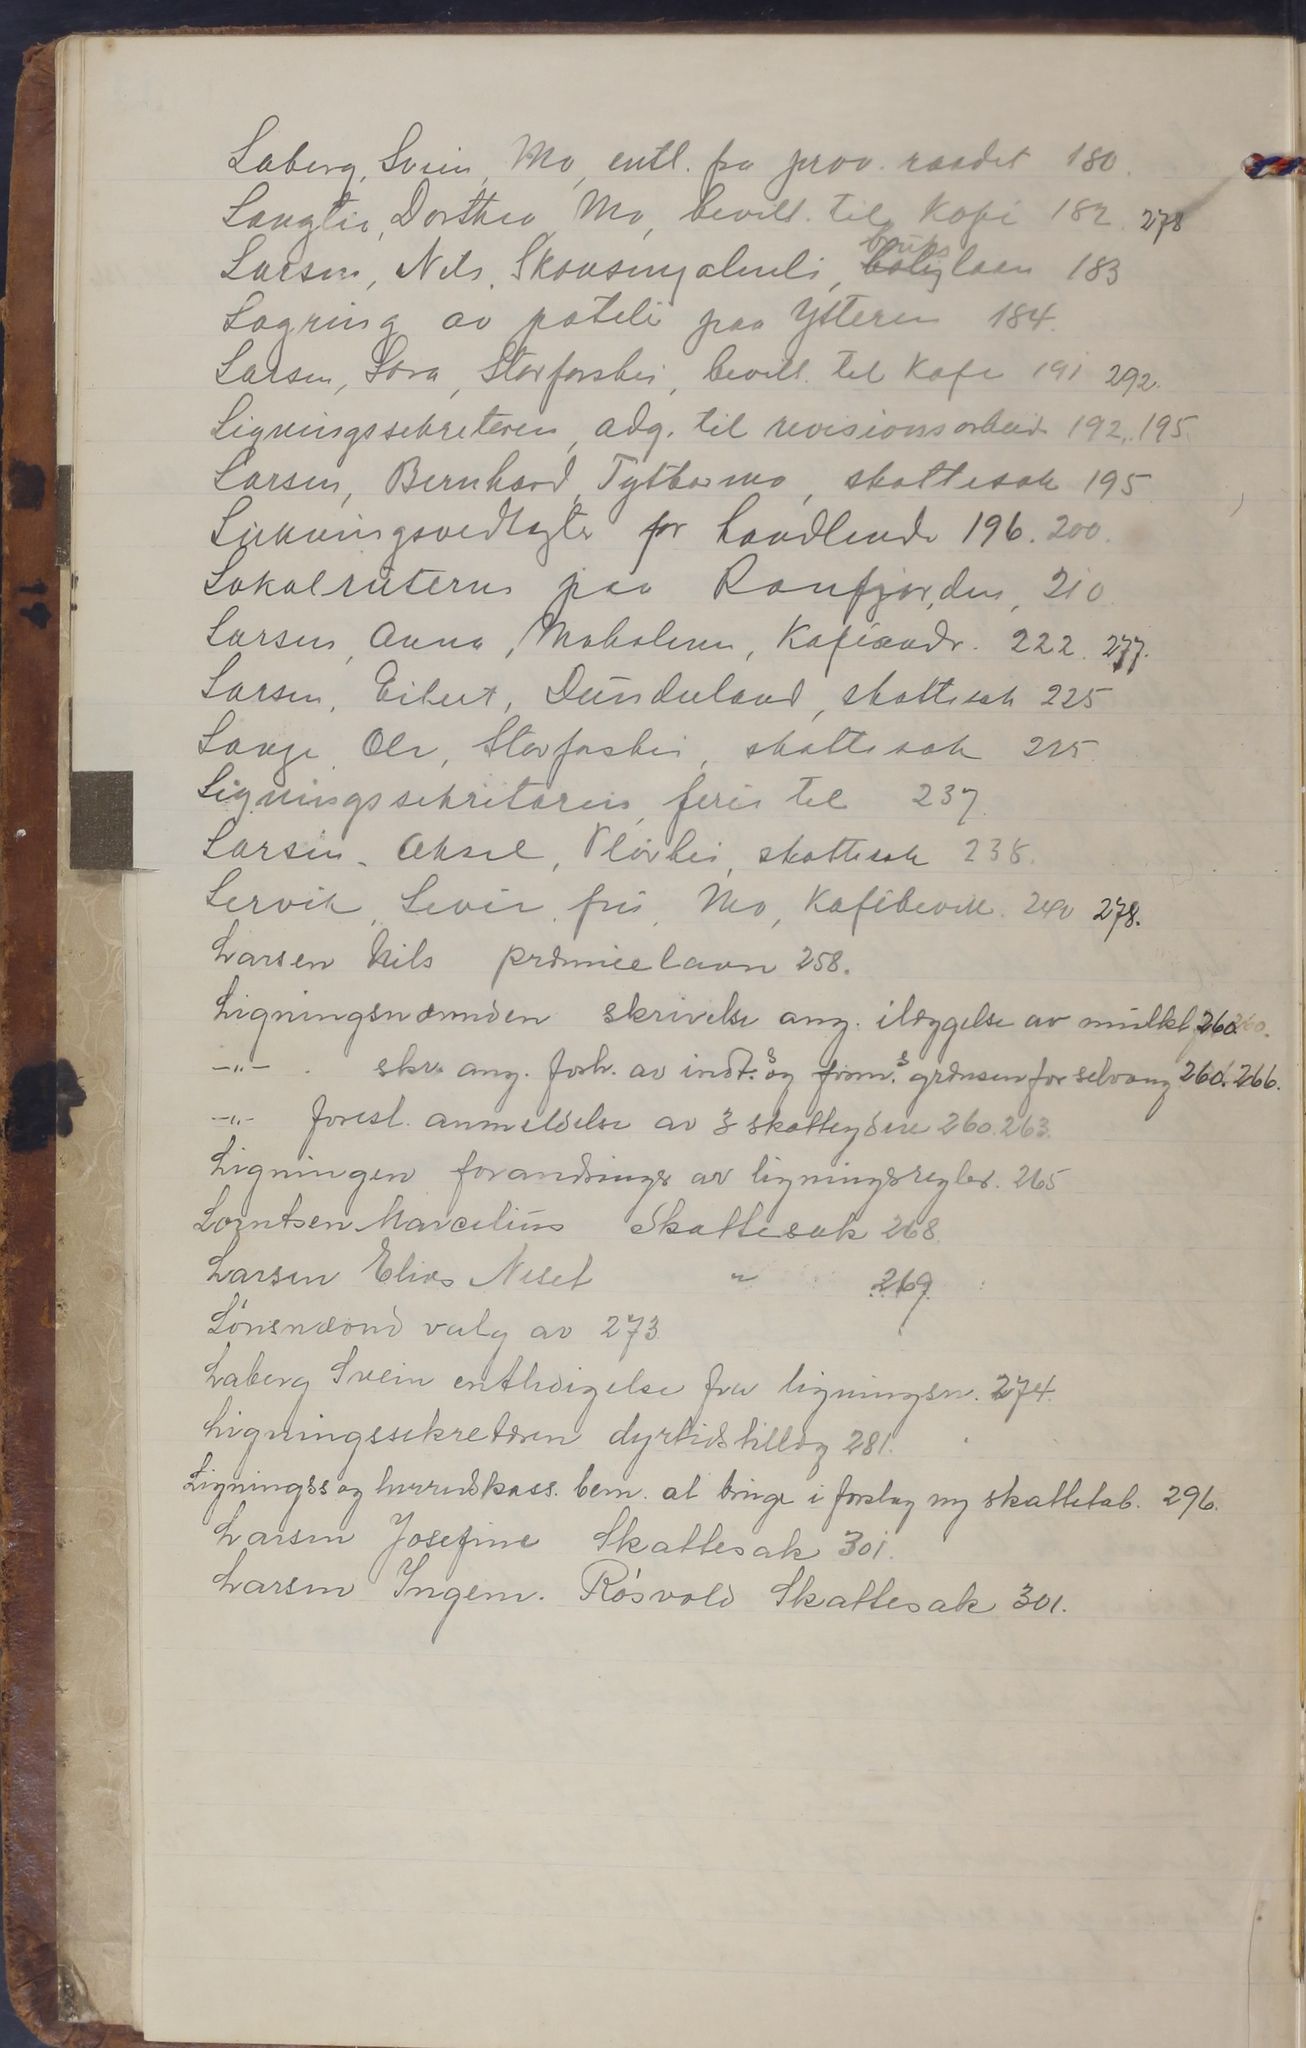 Laberg, Svein, Mo, entl. fra prov. raadet 180.
Langli, Dorthea, Mo, bevill. til Kafe 182. 278
bruks
Larsen, Nils, Skonseng, laan 183
Lagring av poteter paa Ytteren 184.
Larsen, Lova, Storforshei, bevill. til Kafe 191 292.
Ligningssekretæren, adg. til revisionsarbeid 192, 195.
Larsen, Bernhard, Mo, skattesak 195
Lukningsvedtægter for handlende 196. 200.
Lokalruterne paa Ranfjorden, 210.
Larsen, Anna, Moholmen, Kafeandr. 222. 277.
Larsen, Eibert, Dunderland, skattesak 225
Lange Ole, Storforshei, skattesak 225.
Ligningssekretæren, ferie til 237.
Larsen, Aksel, Fløxhei, skattesak 238.
Servik, fru, Mo, Kafebevill. 240 278.
Larsen Nils præmielaan 258.
Ligningsnæmnden skrivelse ang. ilæggelse av mulkt 260. 260.
-"- . skr. ang. forh. av indt.s og form.s grænsen for selvang 260. 266.
-"- forest. anmeldelse av 3 skatteydere 260. 263.
Ligningen forandringer av ligningsregler. 265
Lorntsen Marcelius Skattesak 268.
Larsen Elias Neset " 269.
Lønsnævnd valg av 273.
Laberg Svein entledigelse fra ligningsn. 274.
Ligningssekretæren dyrtidstillæg 281.
Ligningss og herredskass. bem. at bringe i forslag ny skattetab. 296.
Larsen Josefine Skattesak 301.
Larsen Ingem. Røsvold Skattesak 301.